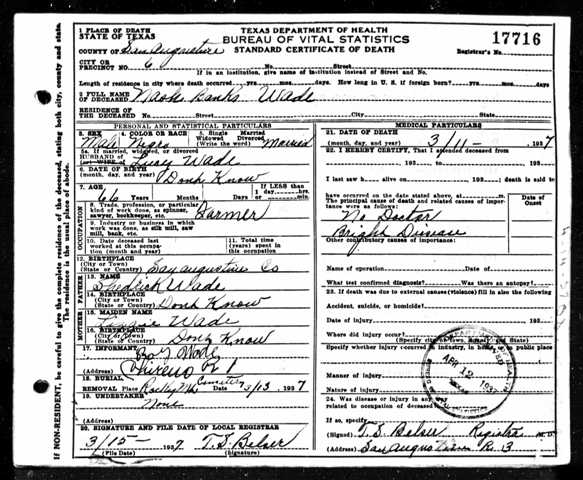 1 PLACE OF DEATH
STATE OF TEXAS
TEXAS DEPARTMENT OF HEALTH
BUREAU OF VITAL STATISTICS
STANDARD CERTIFICATE OF DEATH
17716
COUNTY OF San Augustine
Registrar's No.
CITY OR
PRECINCT NO. 6 No. Street
If in an institution, give name of institution instead of Street and No.
Length of residence in city where death occurred yrs. mos. days. How long in U. S. if foreign born? yrs. mos. days
2 FULL NAME
OF DECEASED Banks Wade
RESIDENCE OF
THE DECEASED No. Street City State
PERSONAL AND STATISTICAL PARTICULARS
3. SEX 4. COLOR OR RACE 5. Single Married
Widowed Divorced
(Write the word) Married
Male Negro
5a. If married, widowed, or divorced
HUSBAND OF
or WIFE of Lucy Wade
6. DATE OF BIRTH
(month, day, and year) Donh Know
7. AGE 66 Years Months Days
If LESS than
1 day hrs.
or min.
OCCUPATION
8. Trade, profession, or particular
kind of work done, as spinner,
sawyer, bookkeeper, etc. Farmer
9. Industry or business in which
work was done, as silk mill, saw
mill, bank, etc.
10. Date deceased last
worked at this occupa-
tion (month and year)
11. Total time
(years) spent in
this occupation
12. BIRTHPLACE
(City or Town)
(State or Country) San augustine Co
FATHER
13. NAME
Shedrick Wade
14. BIRTHPLACE
(City or Town)
(State or Country) Donh Know
MOTHER
15. MAIDEN NAME
Wade
16. BIRTHPLACE
(City or Town)
(State or Country) Donh Know
17. INFORMANT
Wade
Chireno Rt 1
(Address)
18. BURIAL Cemetery
REMOVAL Place Date 3/13 1937
19. UNDERTAKER
None
(Address)
20. SIGNATURE AND FILE DATE OF LOCAL REGISTRAR
3/15- 1937 T. S. Balser
(File Date) (Signature)
MEDICAL PARTICULARS
21. DATE OF DEATH
(month, day, and year) 3/11- 1937
22. I HEREBY CERTIFY, That I attended deceased from
193 to 193
I last saw h alive on 193 ; death is said to
have occurred on the date stated above, at m.
The principal cause of death and related causes of impor-
tance were as follows:
Date of
Onset
No Doctor
Bright Disease
Other contributory causes of importance:
Name of operation Date of
What test confirmed diagnosis? Was there an autopsy?
23. If death was due to external causes (violence) fill in also the following
Accident, suicide, or homicide?
Date of injury 193
Where did injury occur?
(Specify city, town, county, and State)
Specify whether injury occurred in industry, in home, or in public place
Manner of injury
Nature of injury
24. Was disease or injury in any way
related to occupation of deceased?
If so, specify
(Signed) T. S. Balser Registrar M. D.
(Address) San Augustine R. 3
APR 12 1937
IF NON-RESIDENT, be careful to give the complete residence of the deceased, stating both city, county and state.
The residence is the usual place of abode.